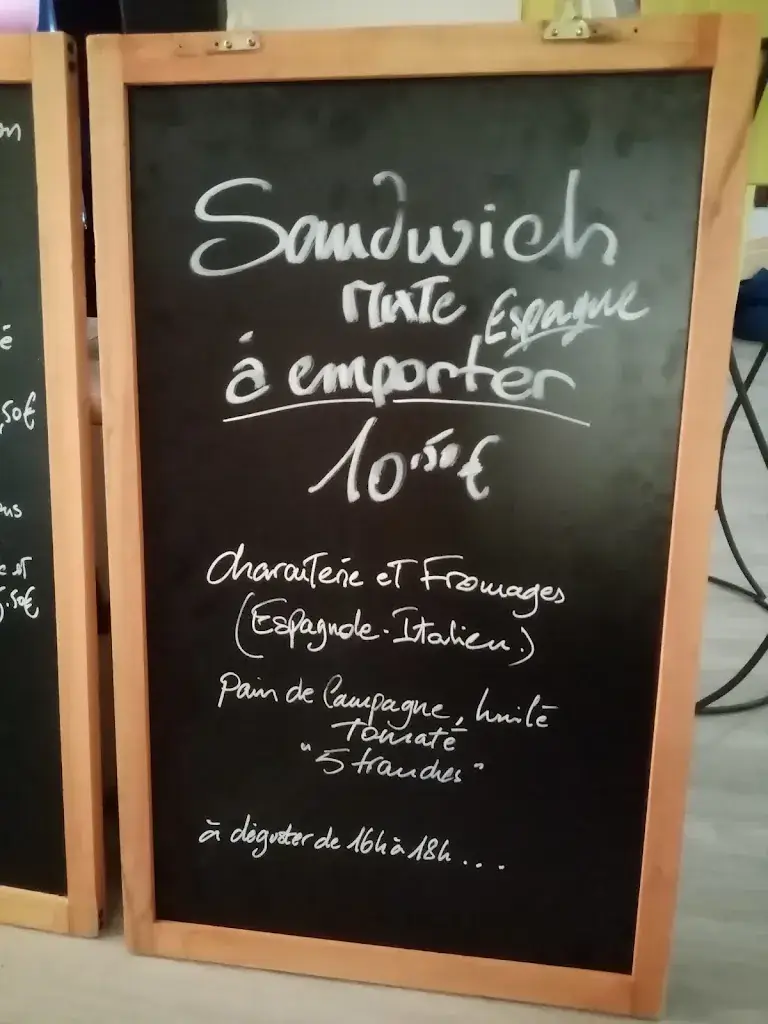 Sandwich
MIXTE Espagne
à emporter
10.50€
Charcuterie et Fromages
(Espagnole-Italien.)
Pain de Campagne, huilé
tomaté
"5 tranches"
à déguster de 16h à 18h...
on
é
.50€
us
et
.50€